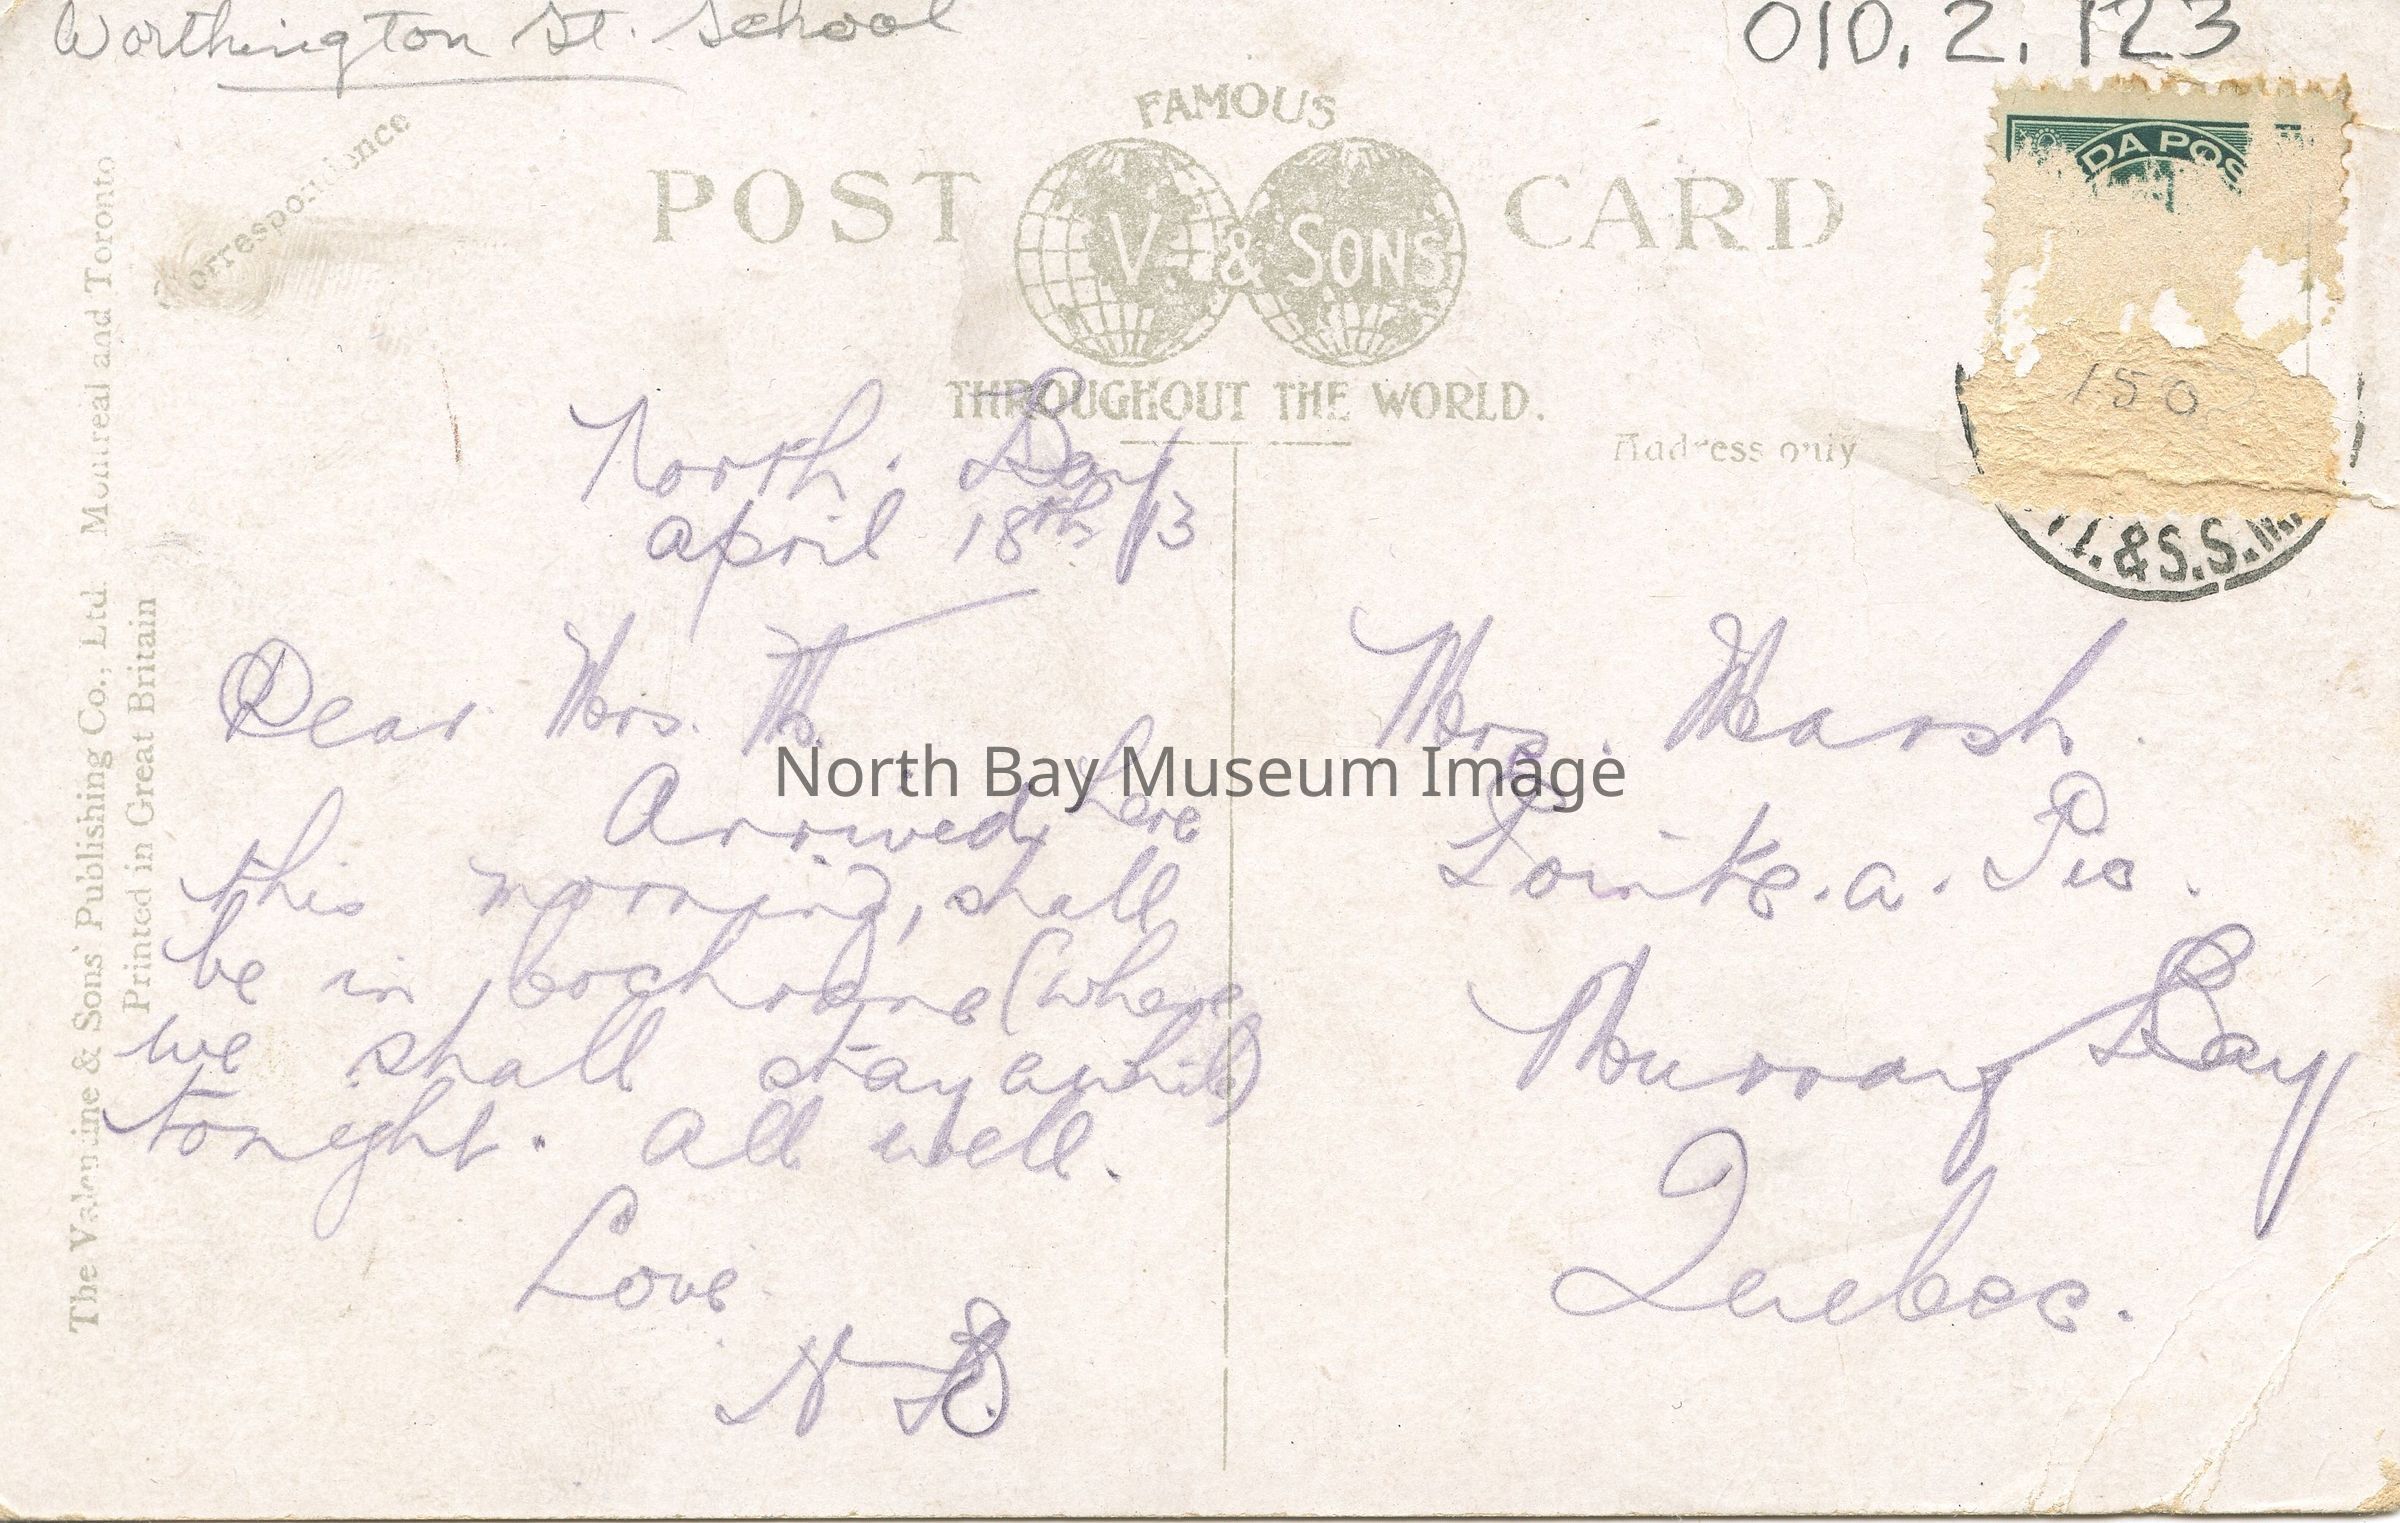 Worthington St. School
010.2.123
Correspondence
FAMOUS
POST CARD
V. & SONS
THROUGHOUT THE WORLD.
Address only
DA POS
150
. & S.S.
The Valentine & Sons' Publishing Co., Ltd. Montreal and Toronto
Printed in Great Britain
North Bay
April 18th/13
Dear Mrs. M.
Arrived here
this morning, shall
be in Cochrane (where
we shall stay awhile)
tonight. All well.
Love
N B
Mrs. Marsh.
Pointe. a. Pic.
Murray Bay
Quebec.
North Bay Museum Image